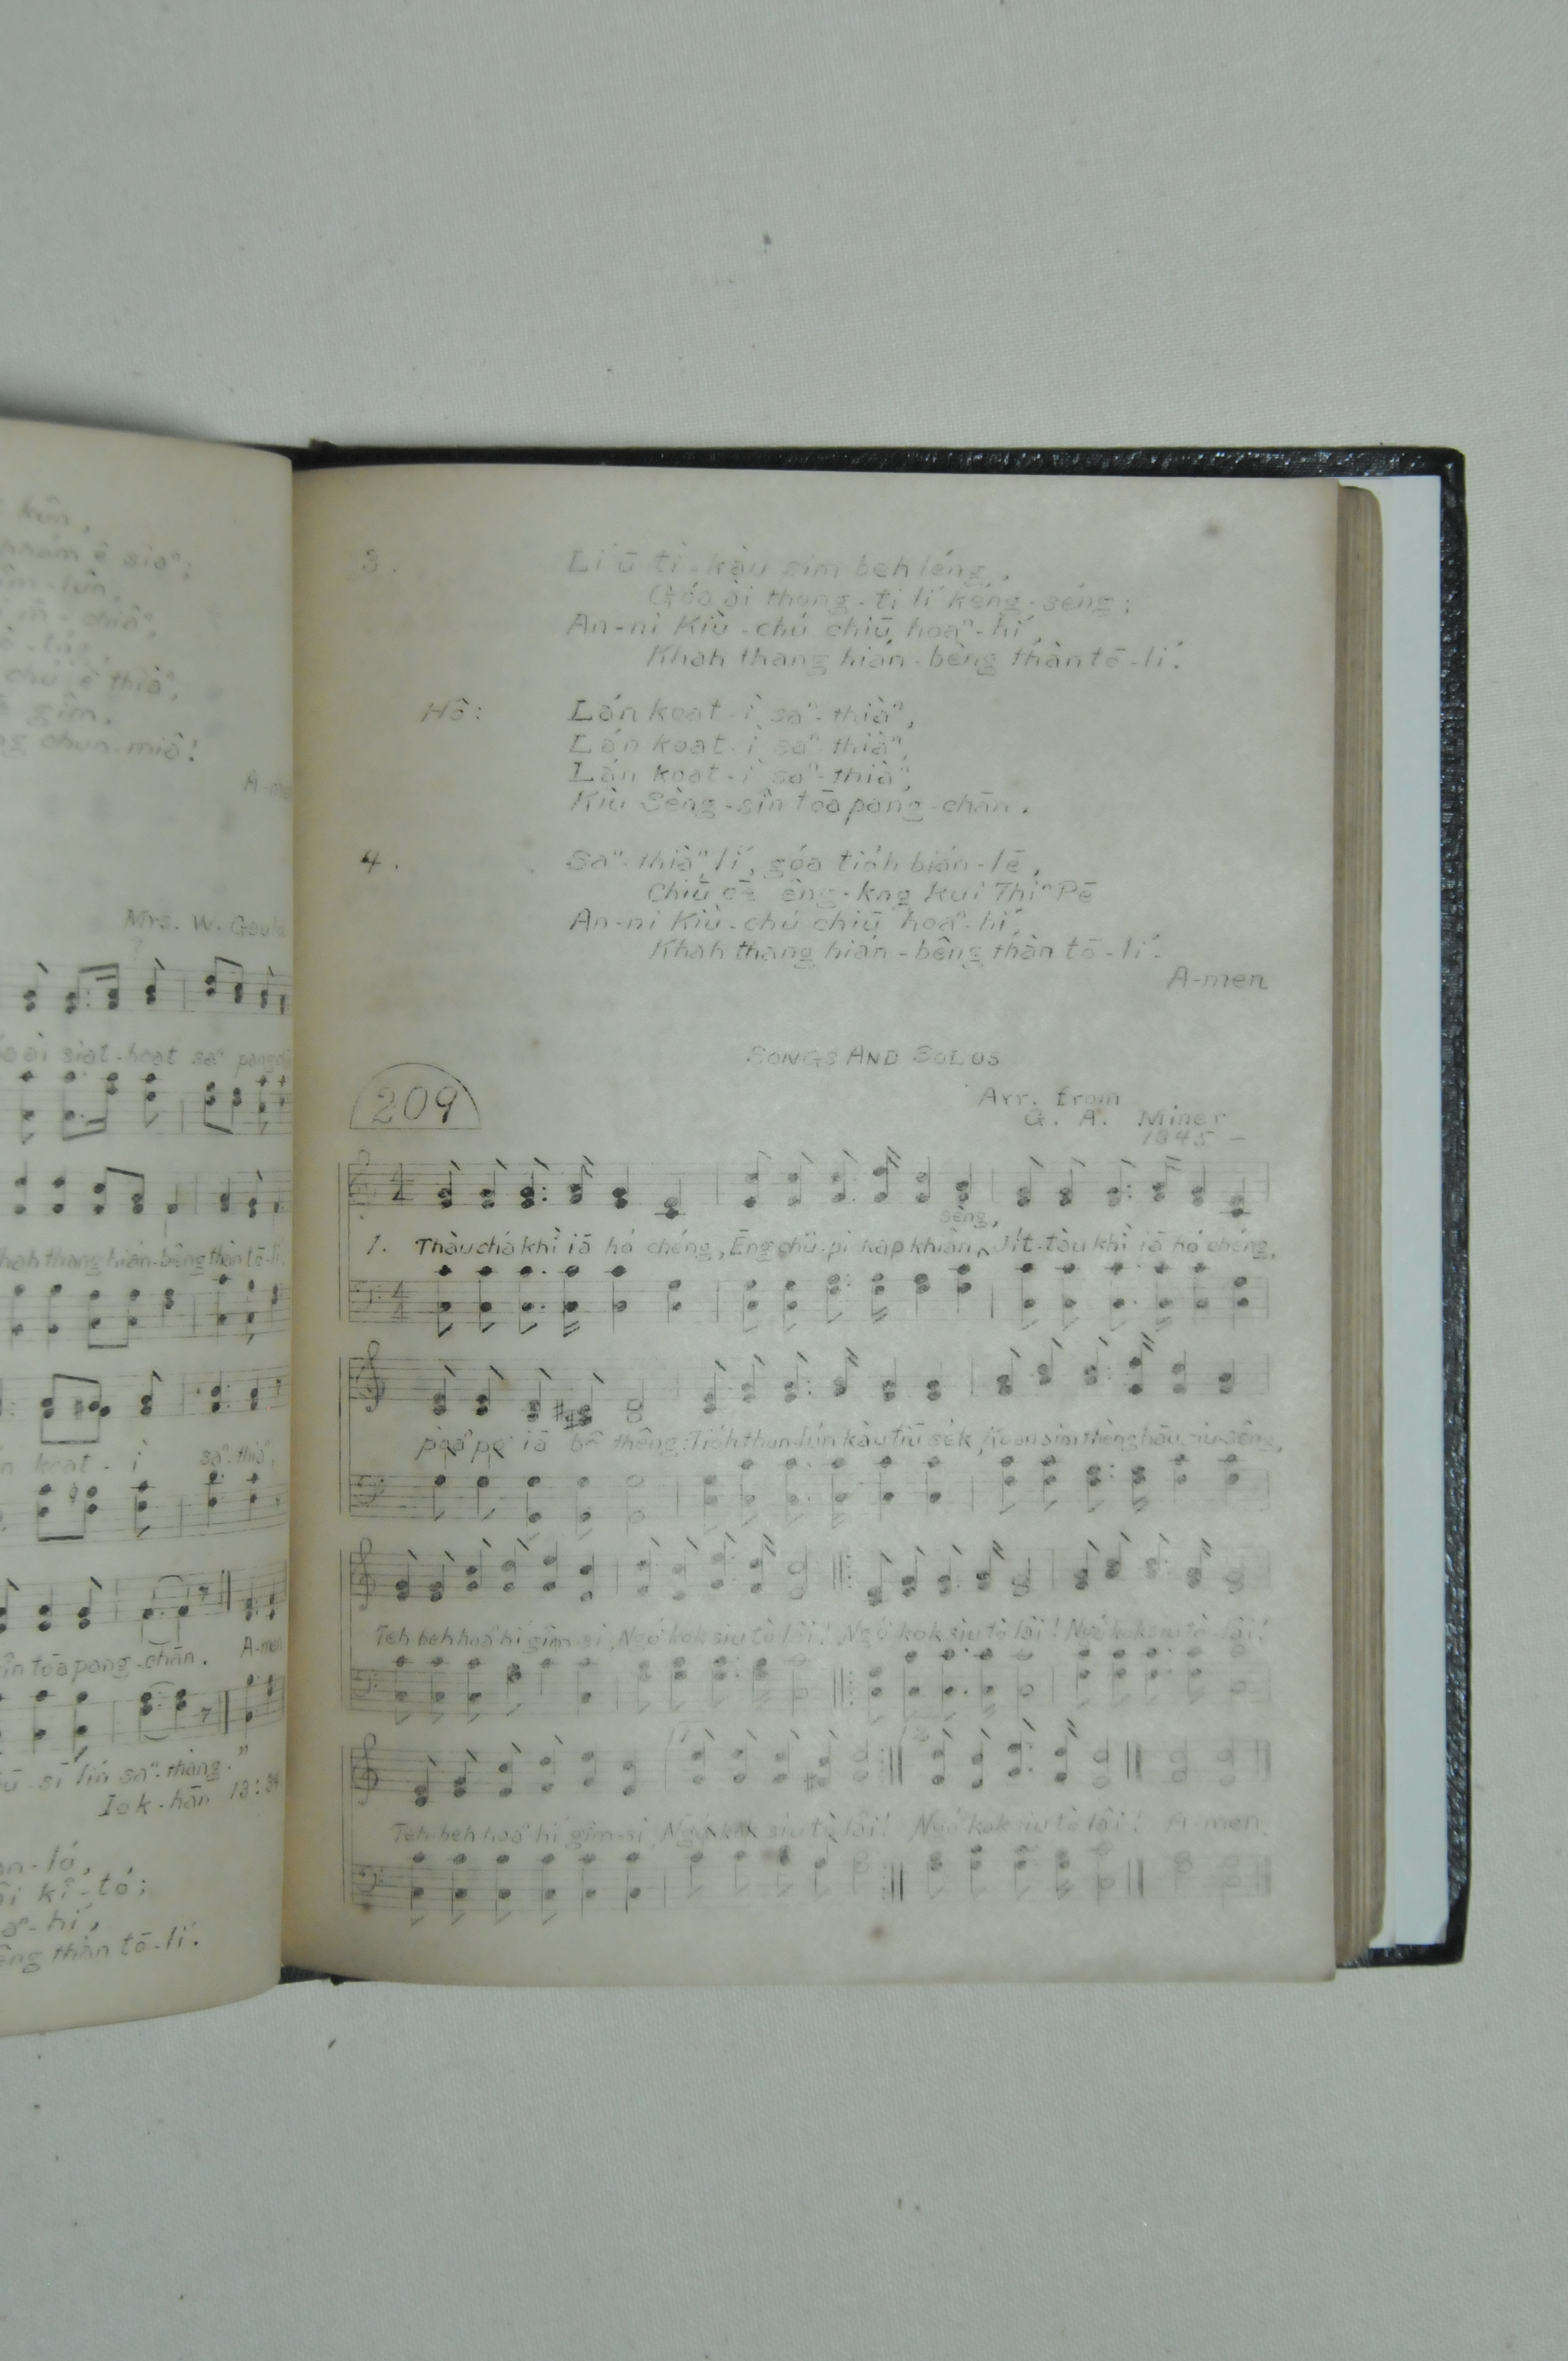 kûn,
ê siaⁿ;
lûn,
m̄-chiâⁿ,
chú ê thiàⁿ,
gîm.
chun-miâ!
A-me
Mrs. W. Gaul
ài siat-hoat saⁿ pang
khah thang hián-bêng thàn tō-lí.
koat-ì saⁿ-thiàⁿ,
A-men
sîn tōa pang-chān.
lín saⁿ-thàng."
Iok-hān 13:34
kî-tó;
hí,
thàn tō-lí.
3. Lí ū tì-kàu sim beh léng,
Góa ài thong-ti lí kéng-séng;
An-ni Kiù-chú chiū hoaⁿ-hí,
Khah thang hián-bêng thàn tō-lí.
Hô: Lán koat-ì saⁿ-thiàⁿ,
Lán koat-ì saⁿ-thiàⁿ,
Lán koat-ì saⁿ-thiàⁿ,
Kiù Sèng-sîn tōa pang-chān.
4. Saⁿ-thiàⁿ lí, góa tióh bián-lē,
Chiū ōe êng-kng kui Thiⁿ Pē
An-ni Kiù-chú chiū hoaⁿ-hí,
Khah thang hián-bêng thàn tō-lí.
A-men
SONGS AND SOLOS
209
Arr. from
G. A. Miner
1845 -
sèng,
1. Thàu chá khì iā hó chéng, Ēng chû-pi kap khiân ‸ Jit-tàu khì iā hó chéng,
poàⁿ po iā bô thêng; Tióh thun-lún kàu tiū sék, Koan sim thèng hāu siu-sêng,
Teh beh hoaⁿ hí gîm-si, Ngó͘ kok siu tò lâi! Ngó͘ kok siu tò lâi! Ngó͘ kok siu tò lâi!
Teh-beh hoaⁿ hí gîm-si, Ngó͘ kok siu tò lâi! Ngó͘ kok siu tò lâi! A-men.